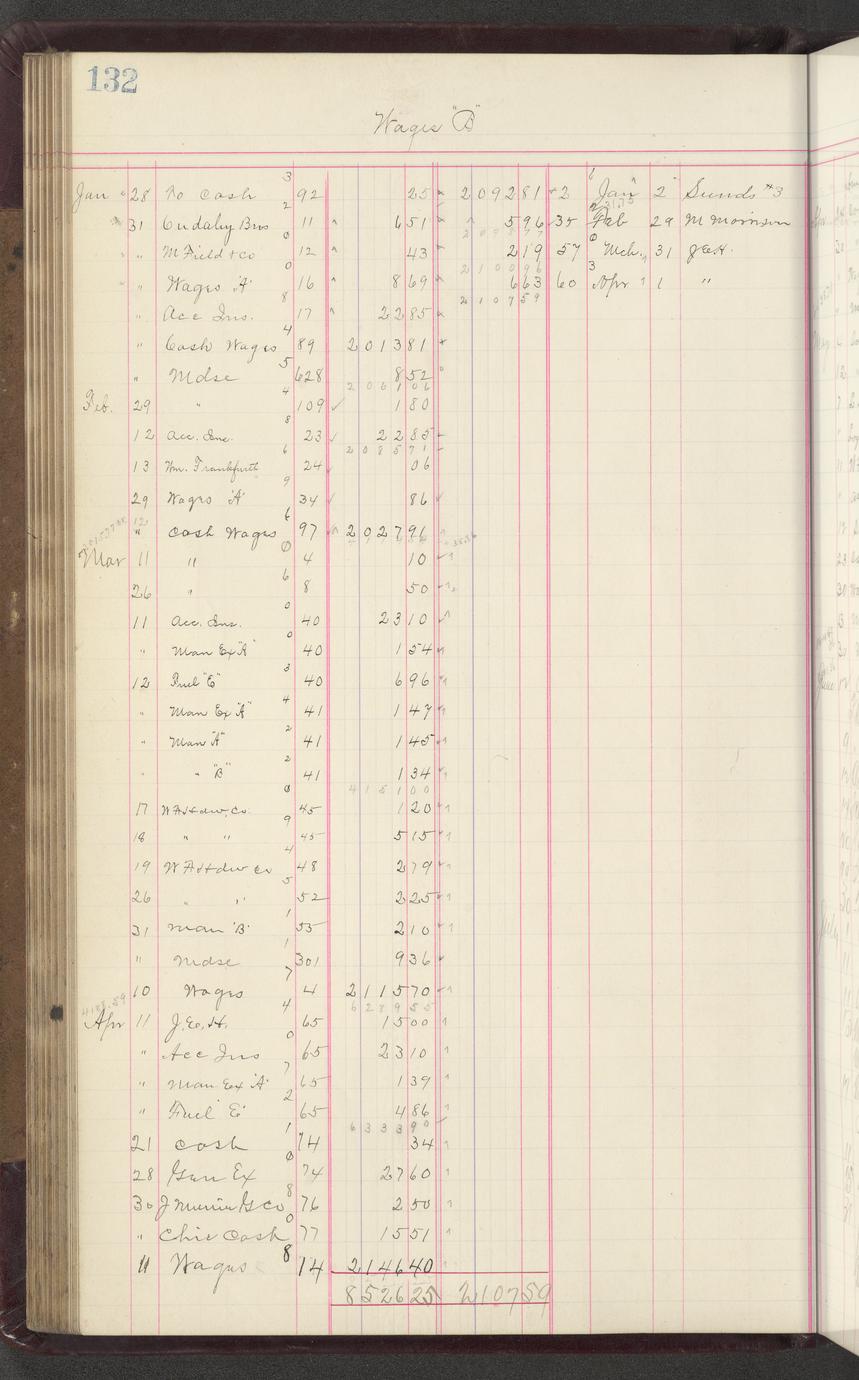 132
Wages "B"
Jan 28 To Cash 92 25 209281 2 Jan 2 Sunds #3
31 Cudahy Bros 11 651 596 35 Feb 29 M Morrison
" M Field & Co 12 43 219 57 Mch. 31 J.E.H.
" Wages "A" 16 869 663 60 Apr 1 "
" Acc Ins. 17 2285 210759
" Cash Wages 89 201381
" Mdse 628 852
206106
Feb. 29 " 109 180
12 Acc. Ins. 23 2285
208571
13 Wm. Frankfurth 24 06
29 Wages "A" 34 86
" Cash Wages 97 202791
Mar 11 " 4 10
26 " 8 50
11 Acc. Ins. 40 2310
" Man Ex "A" 40 154
12 Fuel "E" 40 696
" Man Ex "A" 41 147
" Man "A" 41 145
" " "B" 41 134
415100
17 45 120
18 " " 45 515
19 48 279
26 " " 52 225
31 Man "B" 55 210
" Mdse 301 936
10 Wages 4 211570
628955
Apr 11 J.E.H. 65 1500
" Acc Ins 65 2310
" Man Ex "A" 65 139
" Fuel "E" 65 486
633390
21 Cash 74 34
28 Gen Ex 74 2760
30 76 250
" Chic Cash 77 1551
11 Wages 14 214640
852625 210759